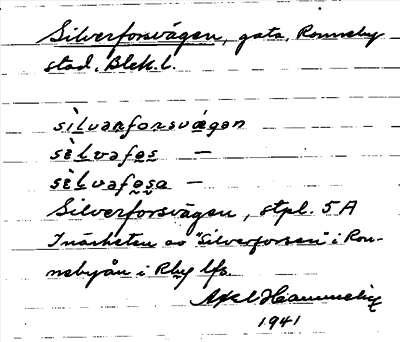 Silverforsvägen, gata, Ronneby
stad. Blek. l.
sìlvərfo̤rsvǽgən
sèlvəfo̤s —
sèlvəfo̤sa —
Silverforsvägen, stpl. 5 A
I närheten av "Silverforsen" i Ron-
nebyån i Rby lfs.
1941